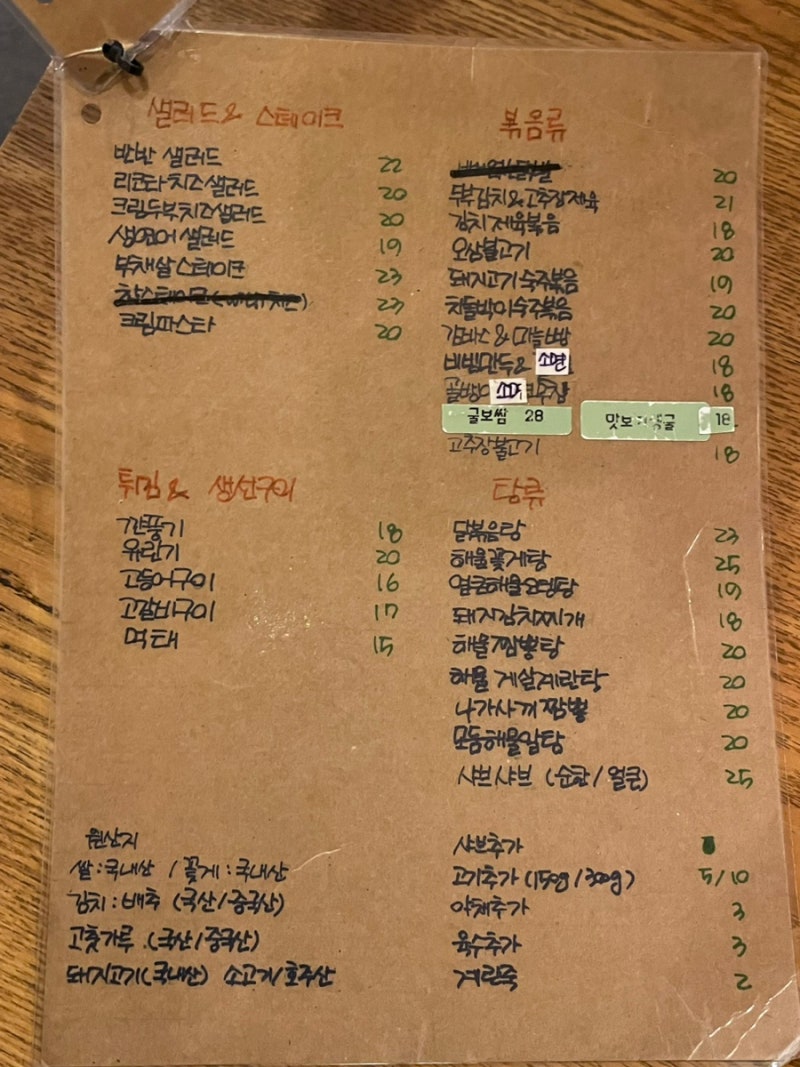 샐러드 & 스테이크
반반 샐러드 22
리코타치즈샐러드 20
크림두부치즈샐러드 20
생연어 샐러드 19
부채살 스테이크 23
23
크림파스타 20
볶음류
20
두부김치&고추장제육 21
김치제육볶음 18
오삼불고기 20
돼지고기 숙주볶음 19
차돌박이숙주볶음 20
감바스 & 마늘빵 20
비빔만두& 소면 18
골뱅이 18
굴보쌈 28
18
고추장불고기 18
튀김 & 생선구이
깐풍기 18
유린기 20
고등어구이 16
고갈비구이 17
먹태 15
탕류
닭볶음탕 23
해물꽃게탕 25
얼큰해물오뎅탕 19
돼지김치찌개 18
해물짬뽕탕 20
해물 게살계란탕 20
나가사끼 짬뽕 20
모듬해물알탕 20
샤브샤브 (순한/얼큰) 25
원산지
쌀:국내산 / 꽃게:국내산
김치:배추 (국산/중국산)
고춧가루 (국산/중국산)
돼지고기(국내산) 소고기/호주산
샤브추가
고기추가 (150g/300g) 5/10
야채추가 3
육수추가 3
계란죽 2